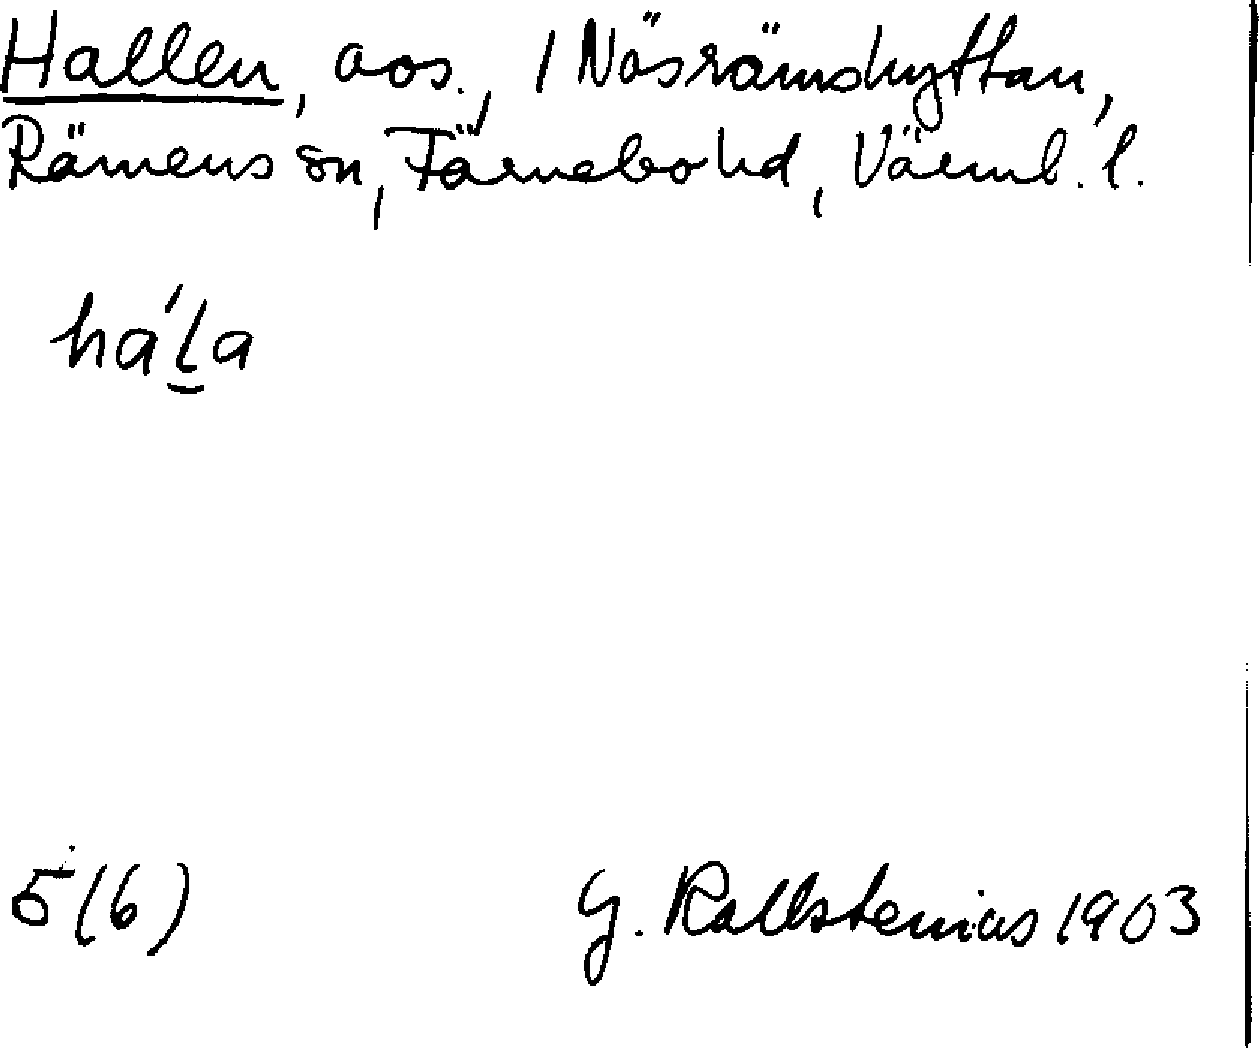 Hallen, aos., / Näsrämshyttan,
Rämens sn, Färnebo hd, Värml. l.
há'l̮a
5 (6)
G. Kallstenius 1903